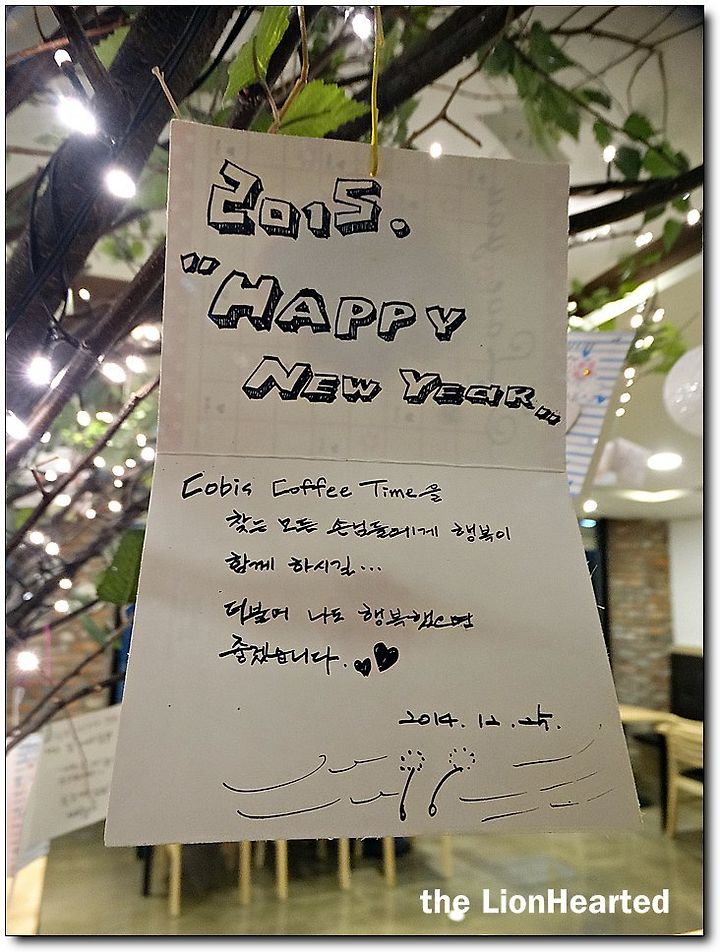 2015.
"HAPPY
NEW YEAR.."
Cobis Coffee Time을
찾는 모든 손님들에게 행복이
함께 하시길...
더불어 나도 행복했으면
좋겠습니다.
2014. 12.
the LionHearted